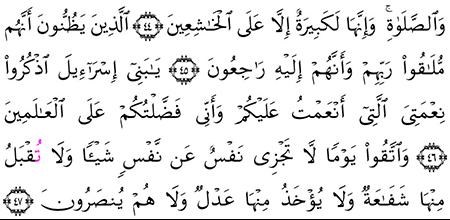 وَٱلصَّلَوٰةِۚ وَإِنَّهَا لَكَبِيرَةٌ إِلَّا عَلَى ٱلْخَـٰشِعِينَ ﴿٤٤﴾ ٱلَّذِينَ يَظُنُّونَ أَنَّهُم
مُّلَـٰقُوا۟ رَبِّهِمْ وَأَنَّهُمْ إِلَيْهِ رَٰجِعُونَ ﴿٤٥﴾ يَـٰبَنِىٓ إِسْرَٰٓءِيلَ ٱذْكُرُوا۟
نِعْمَتِىَ ٱلَّتِىٓ أَنْعَمْتُ عَلَيْكُمْ وَأَنِّى فَضَّلْتُكُمْ عَلَى ٱلْعَـٰلَمِينَ
﴿٤٦﴾ وَٱتَّقُوا۟ يَوْمًا لَّا تَجْزِى نَفْسٌ عَن نَّفْسٍ شَيْـًٔا وَلَا تُقْبَلُ
مِنْهَا شَفَـٰعَةٌ وَلَا يُؤْخَذُ مِنْهَا عَدْلٌ وَلَا هُمْ يُنصَرُونَ ﴿٤٧﴾